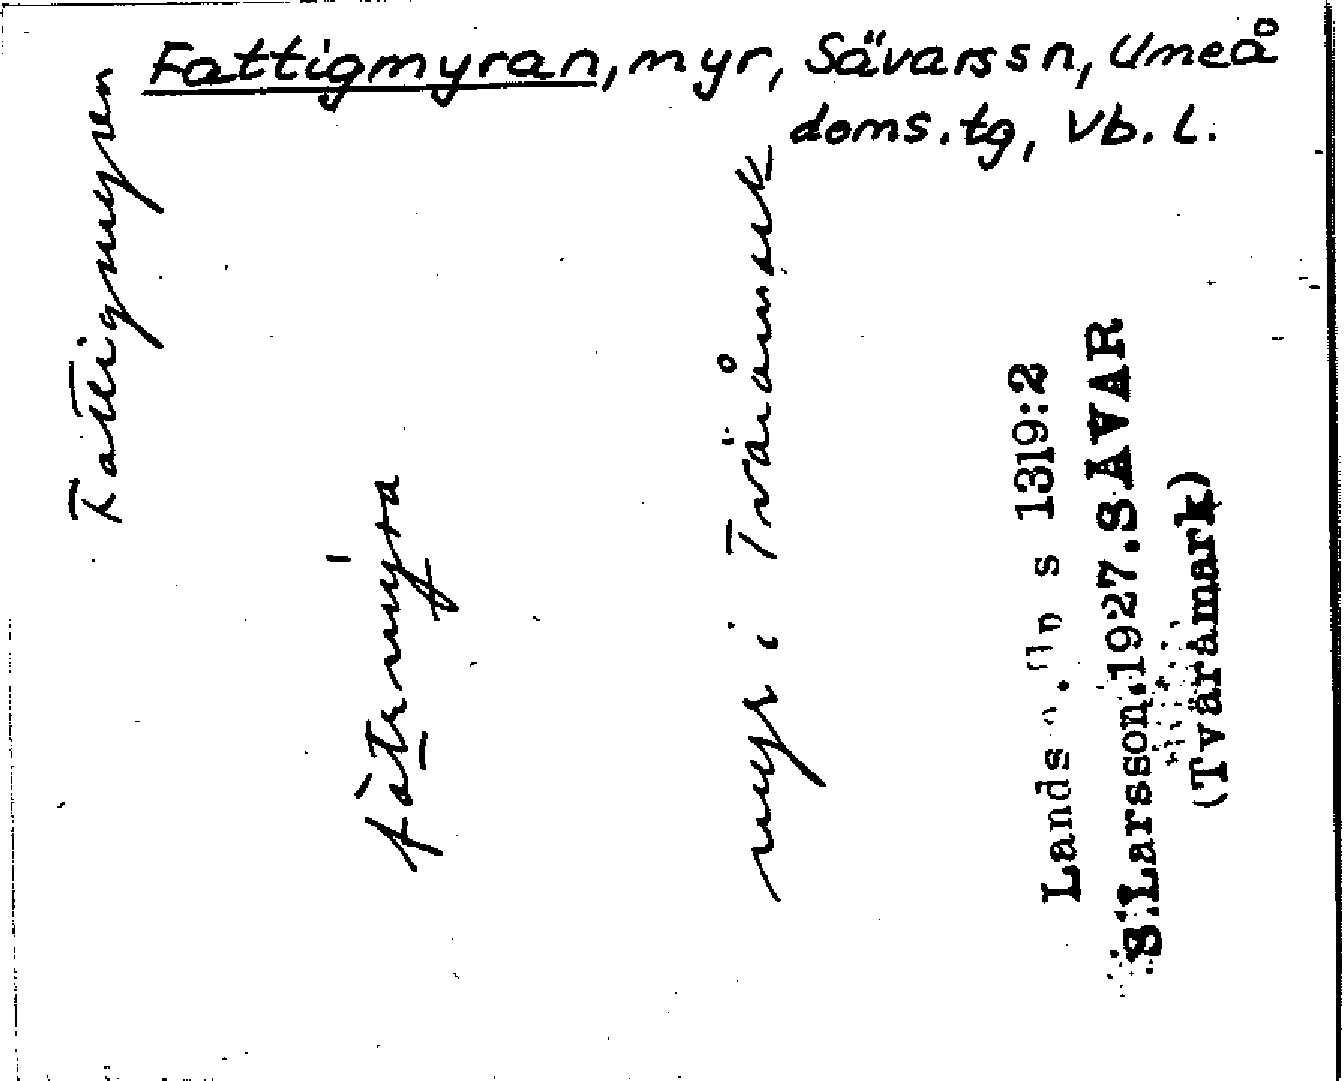 Fattigmyran, myr, Sävars sn, Umeå
doms.tg, Vb. l.
Fattigmyren
myr i Tväråmark
s 1319:2
S.Larsson.1927.SÄVAR
(Tväråmark)